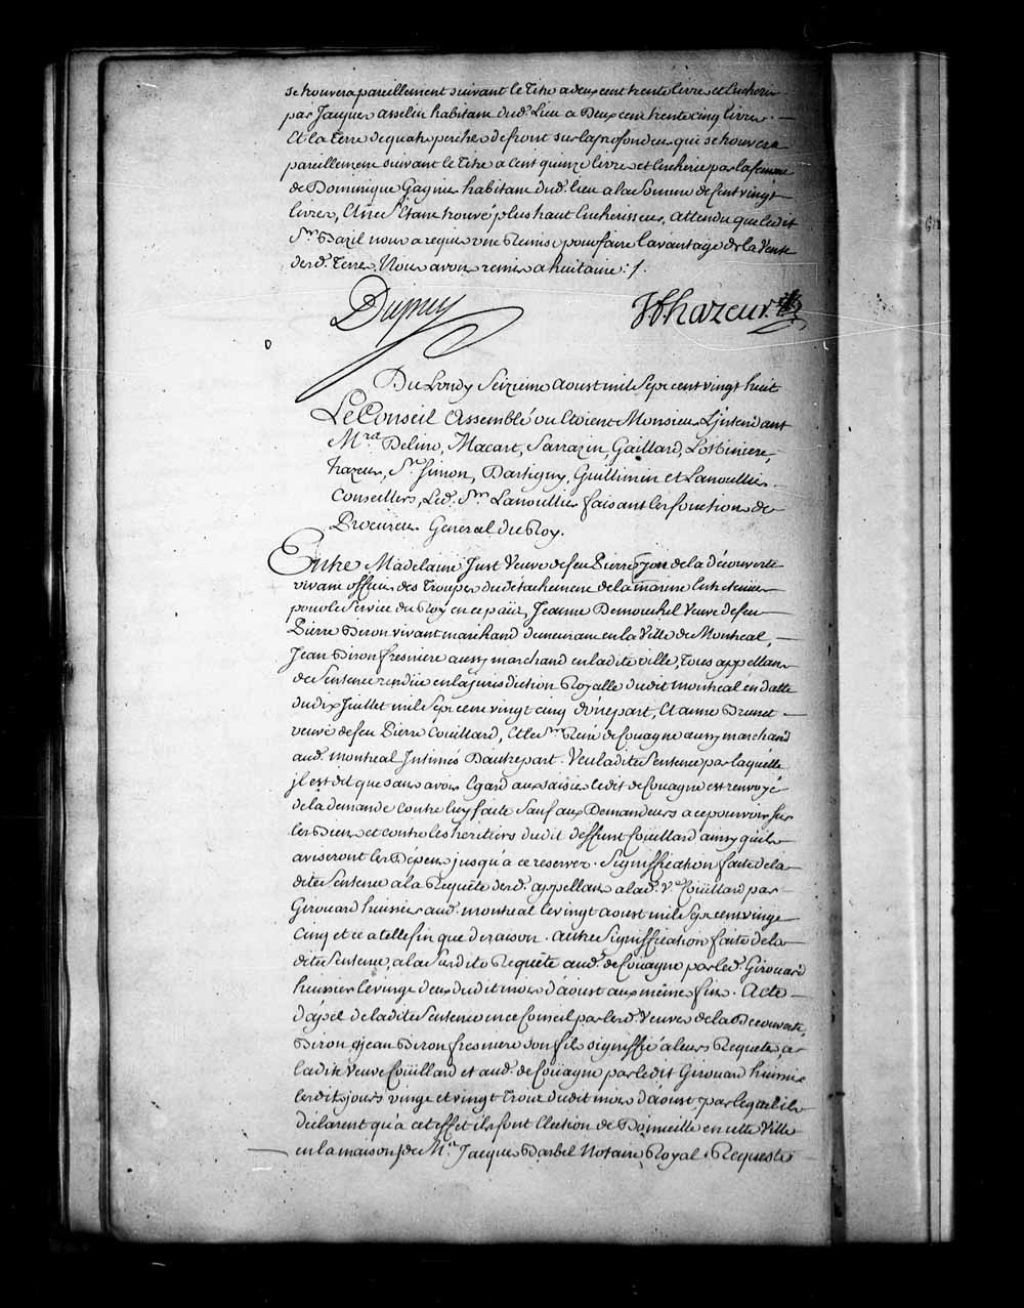 se trouvera pareillement suivant le Titre a deux cent trente livres et Encherie
par Jacques asselin habitant dud. Lieu a Deux cent trente cinq livres. —
Et la terre de quatre perches de front sur la profondeur qui se trouvera
pareillement suivant le titre a cent quinze livres et Encherie par la femme
de Dominique Gagnier habitant dud. lieu a la Somme de Cent vingt
livres, Et ne s'Etant trouvé plus haut Encherisseur, attendu que ledit
Sr. Bazil nous a requis une Remise pour faire l'avantage de la Vente
desd. Terres, Nous avons remis a huitaine :/.
Dupuy
Hazeur
Du Lundy Seizieme aoust mil Sept cent vingt huit
Le Conseil Assemblé ou Etoient Monsieur L'jntendant
Mrs. Delino, Macart, Sarrazin, Gaillard, Lotbiniere,
hazeur, St. Simon, Dartigny, Guillimin et Lanoullier
Conseillers, Led. Sr. Lanoullier faisant les fonctions de
Procureur General du Roy.
Entre Madelaine Just Veuve de feu Pierre You de la découverte
vivant officier des Troupes du détachement de la marine Entretenues
pour le Service du Roy en ce païs, Jeanne Demouchel Veuve de feu
Pierre Biron vivant marchand demeurant en la Ville de Montreal, —
Jean Biron fresniere aussy marchand en ladite ville, Tous appellans
de Sentence rendue en la jurisdiction Royalle dudit montreal en datte
du dix Juillet mil Sept cent vingt cinq d'une part, Et anne Brunet —
veuve de feu Pierre Couillard, Et le Sr. René de Couagne aussy marchand
aud. montreal Intimés D'autre part. Veu ladite Sentence par laquelle
jl est dit que sans avoir Egard aux saisies ledit de Couagne est renvoyé
de la demande contre luy faite Sauf aux Demandeurs a ce pourvoir sur
les Biens et contre les heritiers dudit deffunt Couillard ainsy qu'ils
aviseront les Dépens jusqu'a ce reservez. Signiffication faite de la
dite Sentence a la Requête desd. appellans a lad. Ve. Couillard par
Girouard huissier aud. montreal le vingt aoust mil Sept cent vingt
Cinq et ce a telle fin que de raison. autre Signiffication faite de la
dite Sentence, a la Susdite Requête aud. de Couagne par led. Girouard
huissier le vingt deux dudit mois d'aoust aux mêmes fins. Acte —
d'apel de ladite Sentence en ce Conseil par lesd. Veuves de la Decouverte,
Biron et jean Biron fresniere son fils signiffié a leurs Requetes, a
ladite Veuve Couillard et aud. de Couagne par ledit Girouard huissier
lesdits jours vingt et vingt trois dudit mois d'aoust, par lequel ils
déclarent qu'a cet effet ils font Election de Domicille en cette Ville
en la maison de Me. Jacques Barbel Notaire Royal. Requeste